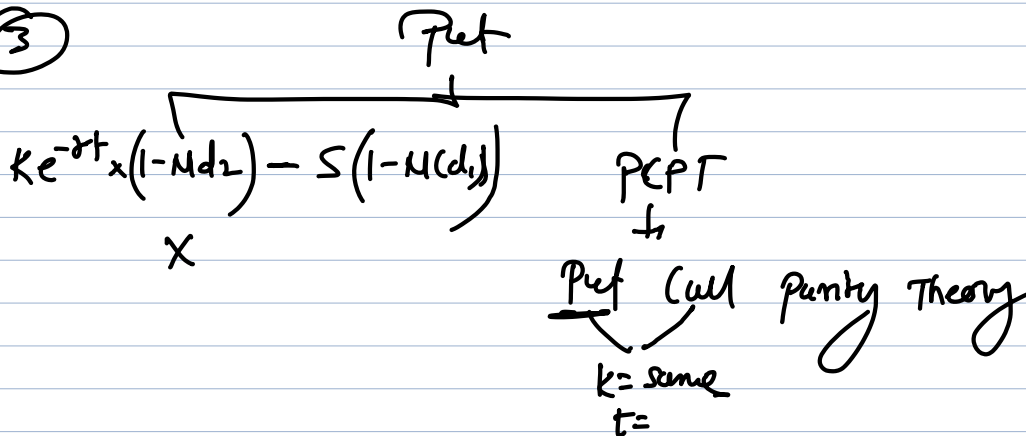 3
Put
Ke^-rt x (1-Nd2) - S(1-N(d1))
PCPT
X
Put Call Parity Theory
K = same
t =